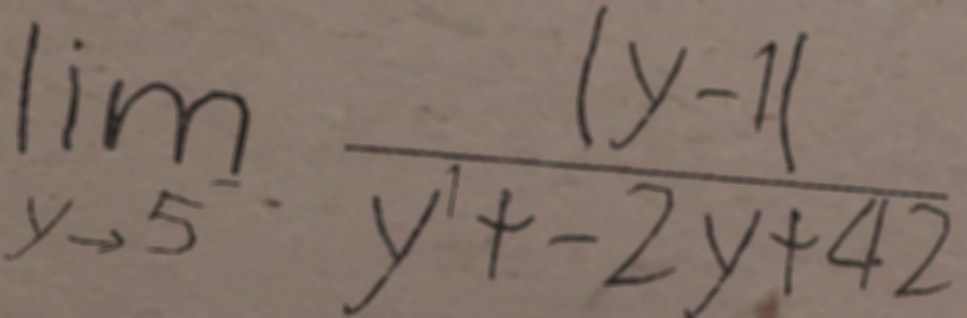 \lim_{y \to 5^-} \frac{|y-1|}{y^1+-2y+42}